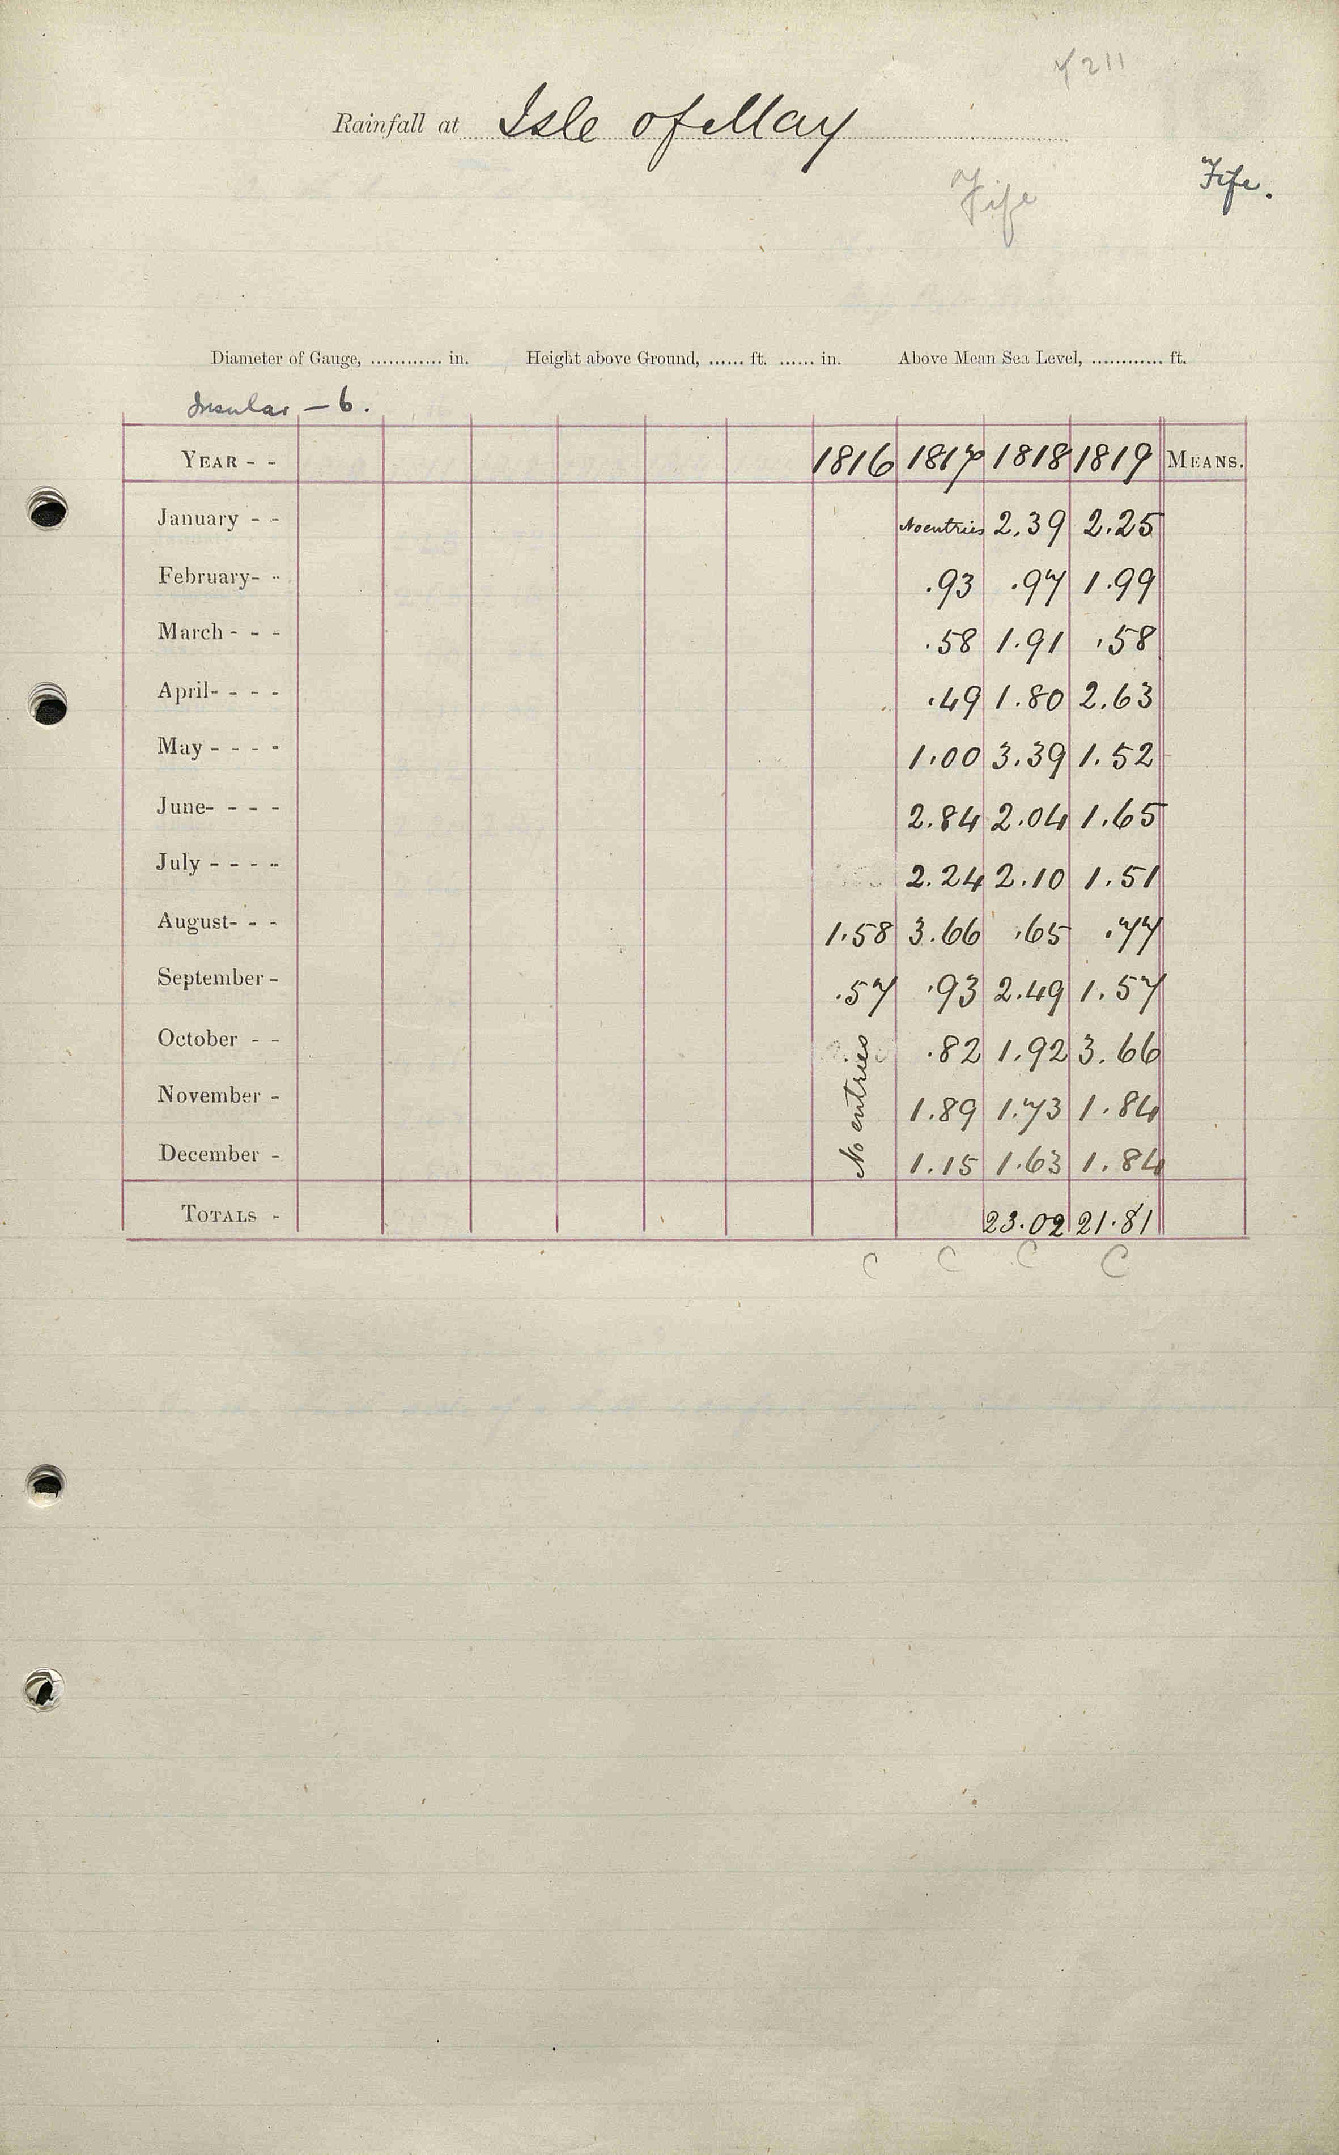 211
Rainfall at Isle of May
Fife
Fife.
Diameter of Gauge, ............ in. Height above Ground, ...... ft. ...... in. Above Mean Sea Level, ............ ft.
Insular – 6.
YEAR - - 1816 1817 1818 1819 MEANS.
January - - No entries 2.39 2.25
February- - .93 .97 1.99
March - - - .58 1.91 .58
April- - - - .49 1.80 2.63
May - - - - 1.00 3.39 1.52
June- - - - 2.84 2.04 1.65
July - - - - 2.24 2.10 1.51
August- - - 1.58 3.66 .65 .77
September - .57 .93 2.49 1.57
October - - No entries .82 1.92 3.66
November - 1.89 1.73 1.84
December - 1.15 1.63 1.84
TOTALS - 23.02 21.81
C C C C